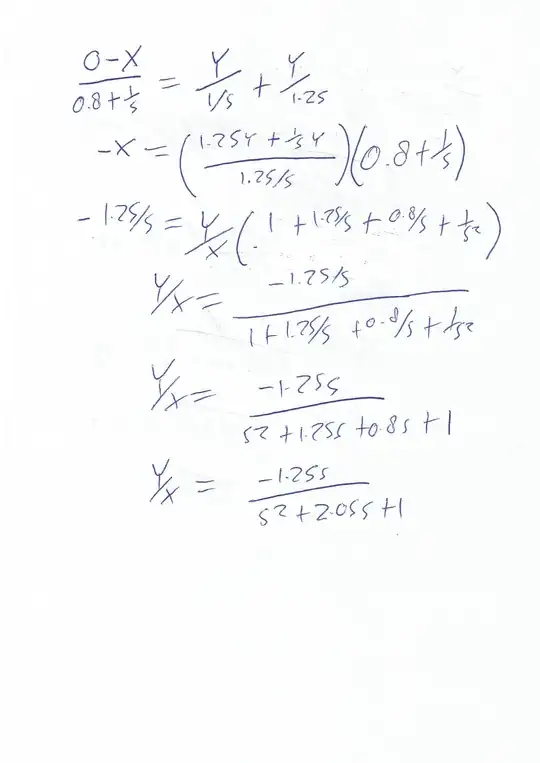 (0-X)/(0.8+1/s) = Y/(1/s) + Y/1.25
-X = ((1.25Y + 1/s Y)/(1.25/s))(0.8+1/s)
-1.25/s = Y/X (1 + 1.25/s + 0.8/s + 1/s²)
Y/X = (-1.25/s)/(1+1.25/s+0.8/s+1/s²)
Y/X = (-1.25s)/(s²+1.25s+0.8s+1)
Y/X = (-1.25s)/(s²+2.05s+1)